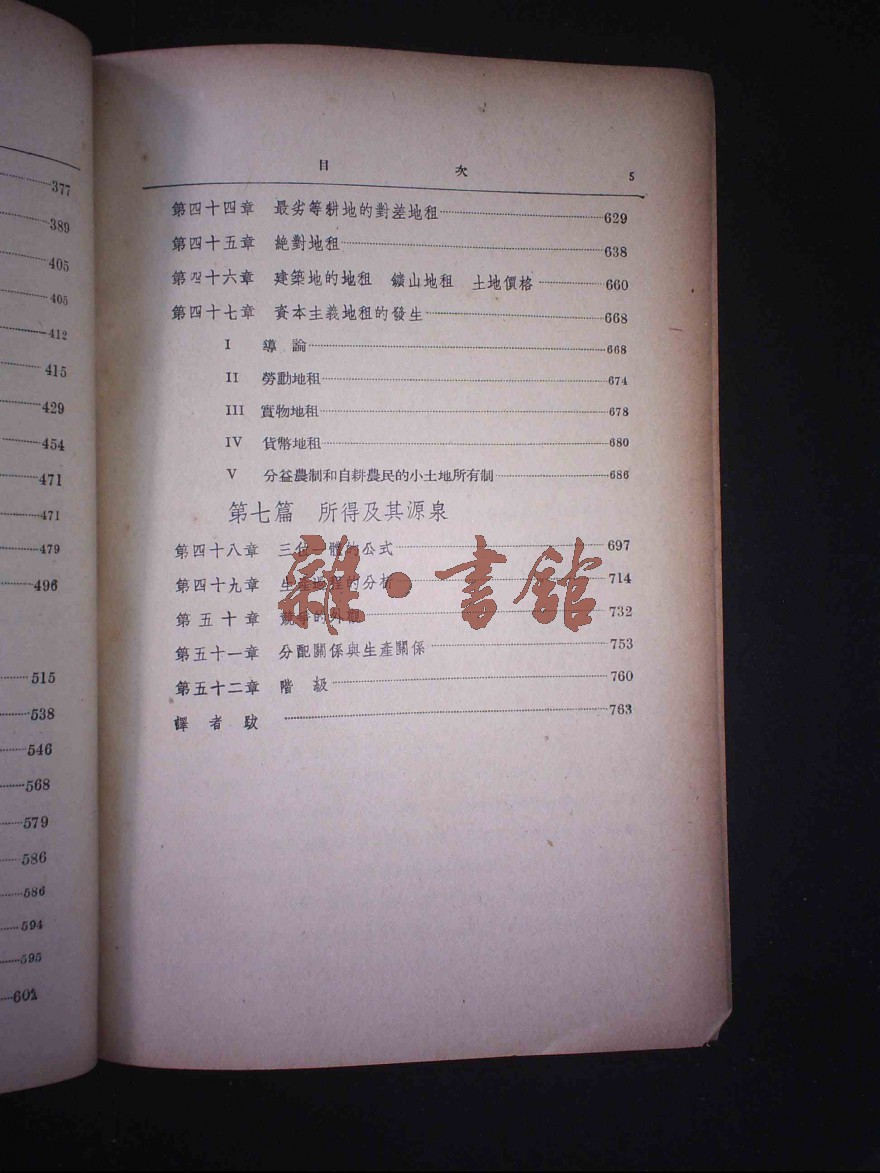 377
389
405
405
412
415
429
454
471
471
479
496
515
538
546
568
579
586
586
594
595
602
目次 5
第四十四章 最劣等耕地的對差地租 629
第四十五章 絕對地租 638
第四十六章 建築地的地租 鑛山地租 土地價格 660
第四十七章 資本主義地租的發生 668
I 導論 668
II 勞動地租 674
III 實物地租 678
IV 貨幣地租 680
V 分益農制和自耕農民的小土地所有制 686
第七篇 所得及其源泉
第四十八章 三位一體的公式 697
第四十九章 生產過程的分析 714
第五十章 競爭的外觀 732
第五十一章 分配關係與生產關係 753
第五十二章 階級 760
譯者跋 763
雜·書館